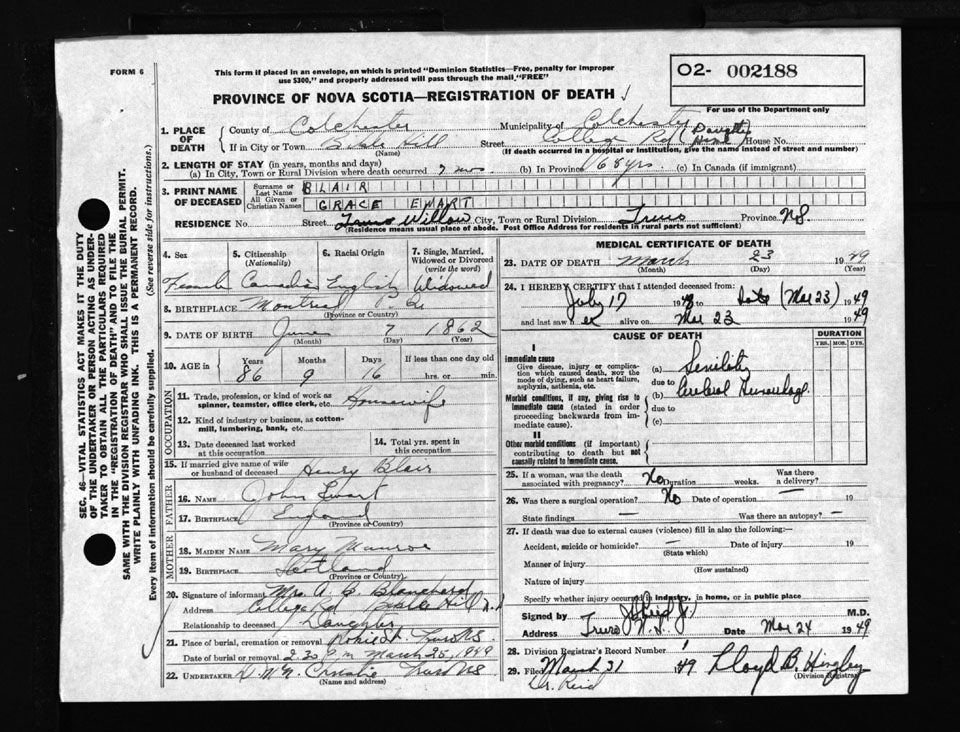 FORM 6
This form if placed in an envelope, on which is printed "Dominion Statistics—Free, penalty for improper
use $300," and properly addressed will pass through the mail "FREE"
O2- 002188
For use of the Department only
PROVINCE OF NOVA SCOTIA—REGISTRATION OF DEATH
1. PLACE OF DEATH
County of Colchester Municipality of Colchester
If in City or Town Bible Hill Street College Rd (Daughter's Home) House No.
(Name) (If death occurred in a hospital or institution, give the name instead of street and number)
2. LENGTH OF STAY (in years, months and days)
(a) In City, Town or Rural Division where death occurred 7 mos (b) In Province 68 yrs. (c) In Canada (if immigrant)
3. PRINT NAME OF DECEASED
Surname or Last Name BLAIR
All Given or Christian Names GRACE EWART
RESIDENCE No. Street Willow City, Town or Rural Division Truro Province N.S.
(Residence means usual place of abode. Post Office Address for residents in rural parts not sufficient)
4. Sex 5. Citizenship (Nationality) 6. Racial Origin 7. Single, Married, Widowed or Divorced (write the word)
Female Canadian English Widowed
8. BIRTHPLACE Montreal P.Q.
(Province or Country)
9. DATE OF BIRTH June 7 1862
(Month) (Day) (Year)
10. AGE in Years Months Days If less than one day old
86 9 16 hrs. or min.
OCCUPATION
11. Trade, profession, or kind of work as spinner, teamster, office clerk, etc. Housewife
12. Kind of industry or business, as cotton-mill, lumbering, bank, etc.
13. Date deceased last worked at this occupation
14. Total yrs. spent in this occupation
15. If married give name of wife or husband of deceased Henry Blair
FATHER
16. NAME John Ewart
17. BIRTHPLACE England
(Province or Country)
MOTHER
18. MAIDEN NAME Mary Munroe
19. BIRTHPLACE Scotland
(Province or Country)
20. Signature of informant Mrs. A. C. Blanchard
Address College Rd Bible Hill N.S.
Relationship to deceased Daughter
21. Place of burial, cremation or removal Truro N.S.
Date of burial or removal 2.30 P.M March 25, 1949
22. UNDERTAKER Christie Truro N.S.
(Name and address)
MEDICAL CERTIFICATE OF DEATH
23. DATE OF DEATH March 23 1949
(Month) (Day) (Year)
24. I HEREBY CERTIFY that I attended deceased from:
July 17 1948 to date (Mar 23) 1949
and last saw her alive on Mar 23 1949
CAUSE OF DEATH
DURATION
YRS. MOS. DYS.
I
Immediate cause
Give disease, injury or complication which caused death, NOT the mode of dying, such as heart failure, asphyxia, asthenia, etc.
(a) Senility
due to
Morbid conditions, if any, giving rise to immediate cause (stated in order proceeding backwards from immediate cause).
(b) Cerebral Hemorrhage
due to
(c)
II
Other morbid conditions (if important) contributing to death but not causally related to immediate cause.
25. If a woman, was the death associated with pregnancy? No Duration weeks. Was there a delivery? —
26. Was there a surgical operation? No Date of operation — 19
State findings — Was there an autopsy? —
27. If death was due to external causes (violence) fill in also the following:—
Accident, suicide or homicide? — Date of injury 19
(State which)
Manner of injury
(How sustained)
Nature of injury
Specify whether injury occurred in industry, in home, or in public place
Signed by M.D.
Address Truro N.S. Date Mar 24 1949
28. Division Registrar's Record Number 1
29. Filed March 31 1949 Lloyd B. Hingley
(Division Registrar)
Dr. Reid
SEC. 46—VITAL STATISTICS ACT MAKES IT THE DUTY
OF THE UNDERTAKER OR PERSON ACTING AS UNDER-
TAKER TO OBTAIN ALL THE PARTICULARS REQUIRED
IN THE "REGISTRATION OF DEATH" AND TO FILE THE
SAME WITH THE DIVISION REGISTRAR WHO SHALL ISSUE THE BURIAL PERMIT.
WRITE PLAINLY WITH UNFADING INK. THIS IS A PERMANENT RECORD.
Every item of information should be carefully supplied. (See reverse side for instructions.)